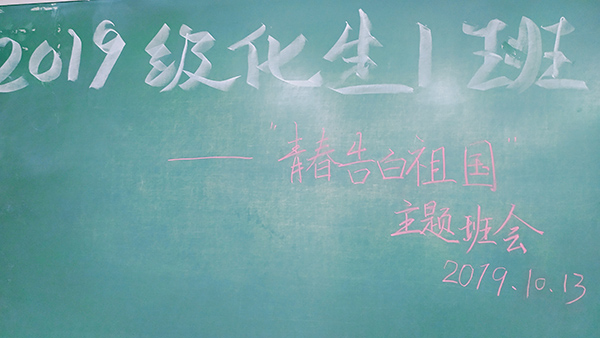 2019级化生1班
——"青春告白祖国"
主题班会
2019.10.13